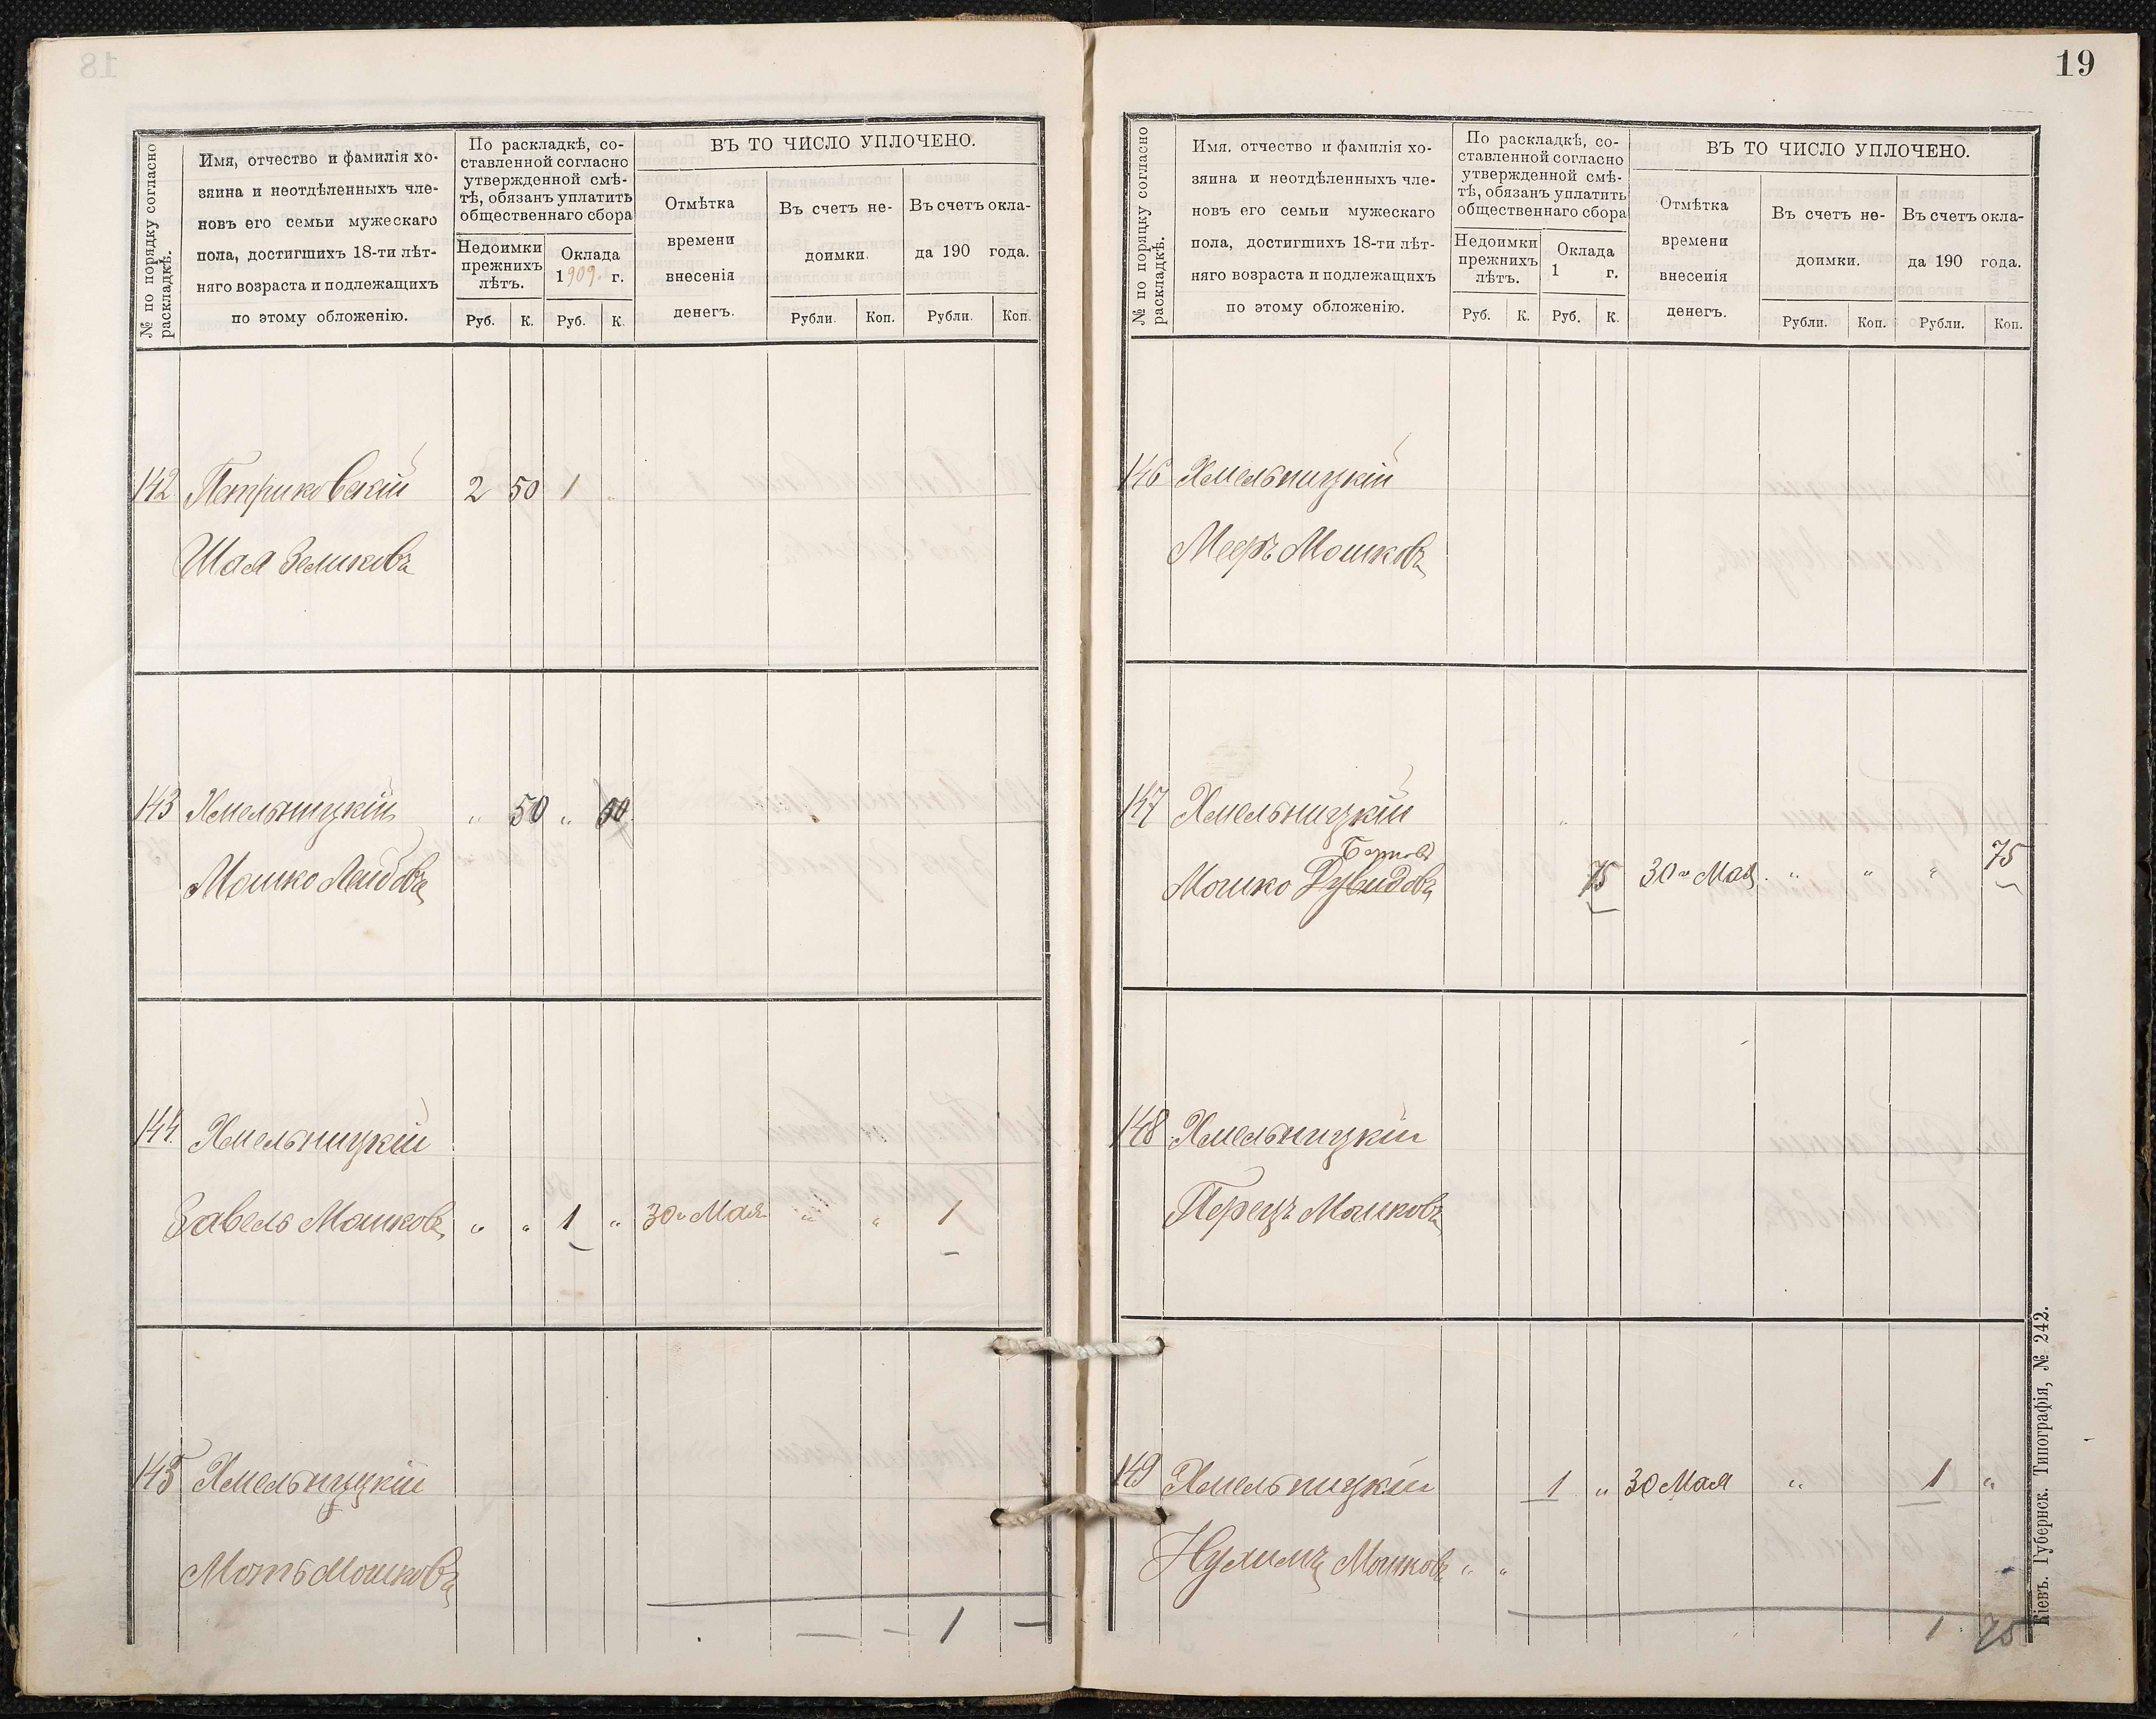 № по порядку согласно
раскладкѣ.
Имя, отчество и фамилія хо-
зяина и неотдѣленныхъ чле-
новъ его семьи мужескаго
пола, достигшихъ 18-ти лѣт-
няго возраста и подлежащихъ
по этому обложенію.
По раскладкѣ, со-
ставленной согласно
утвержденной смѣ-
тѣ, обязанъ уплатить
общественнаго сбора
Недоимки
прежнихъ
лѣтъ.
Оклада
1909. г.
Руб. К. Руб. К.
ВЪ ТО ЧИСЛО УПЛОЧЕНО.
Отмѣтка
времени
внесенія
денегъ.
Въ счетъ не-
доимки.
Въ счетъ окла-
да 190 года.
Рубли. Коп. Рубли. Коп.
142 Петриковскій 2 50 1 „
Шая Зеликовъ
143 Хмельницкій „ 50 „ 50
Мошко Лейбовъ
144. Хмельницкій
Завель Мошковъ „ „ 1 „ 30го Мая „ „ 1
145 Хмельницкій
Моть Мошковъ
— — 1 —
19
№ по порядку согласно
раскладкѣ.
Имя. отчество и фамилія хо-
зяина и неотдѣленныхъ чле-
новъ его семьи мужескаго
пола, достигшихъ 18-ти лѣт-
няго возраста и подлежащихъ
по этому обложенію.
По раскладкѣ, со-
ставленной согласно
утвержденной смѣ-
тѣ, обязанъ уплатить
общественнаго сбора
Недоимки
прежнихъ
лѣтъ.
Оклада
1 г.
Руб. К. Руб. К.
ВЪ ТО ЧИСЛО УПЛОЧЕНО.
Отмѣтка
времени
внесенія
денегъ.
Въ счетъ не-
доимки.
Въ счетъ окла-
да 190 года.
Рубли. Коп. Рубли. Коп.
146 Хмельницкій
Мееръ Мошковъ
147 Хмельницкій „
Мошко Дувидовъ 75 30го Мая. „ „ „ 75
148 Хмельницкій
Перецъ Мошковъ
149 Хмельницкій 1 „ 30 Мая „ 1 „
Нухимъ Мошковъ „ „
1 75
Кіевъ. Губернск. Типографія, № 242.